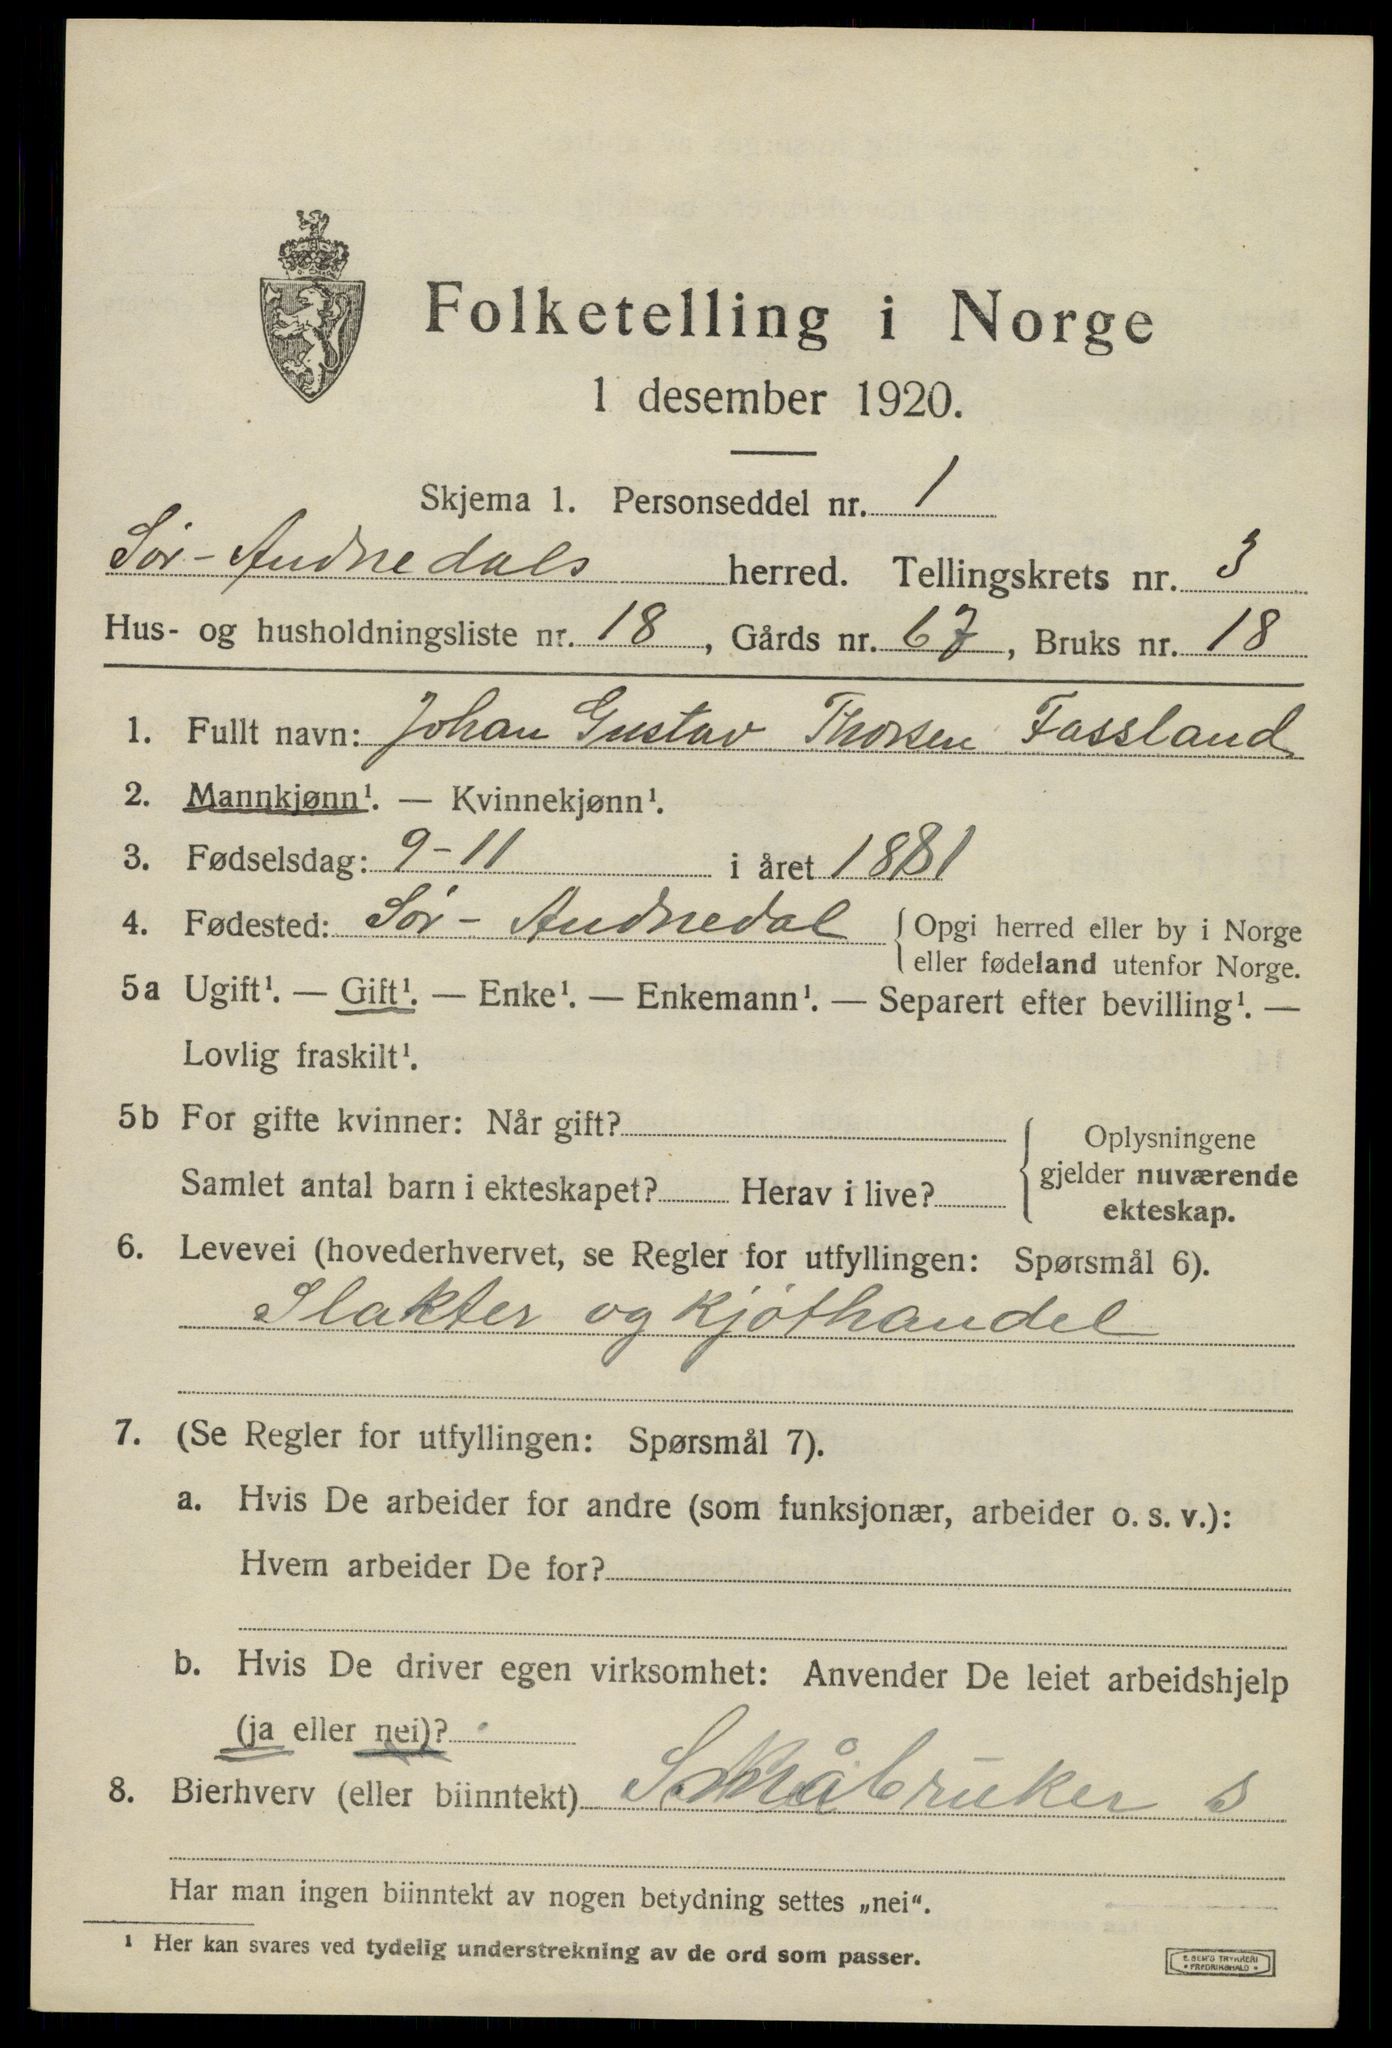 Folketelling i Norge
1 desember 1920.
Skjema 1. Personseddel nr. 1
Sør-Audnedals herred. Tellingskrets nr. 3
Hus- og husholdningsliste nr. 18, Gårds nr. 67, Bruks nr. 18
1. Fullt navn: Johan Gustav Thorsen Fassland
2. Mannkjønn¹. — Kvinnekjønn¹.
3. Fødselsdag: 9-11 i året 1881
4. Fødested: Sør-Audnedal { Opgi herred eller by i Norge
eller fødeland utenfor Norge.
5a Ugift¹. — Gift¹. — Enke¹. — Enkemann¹. — Separert efter bevilling¹. —
Lovlig fraskilt¹.
5b For gifte kvinner: Når gift? { Oplysningene
gjelder nuværende
Samlet antal barn i ekteskapet? Herav i live? ekteskap.
6. Levevei (hovederhvervet, se Regler for utfyllingen: Spørsmål 6).
Slakter og kjøthandel
7. (Se Regler for utfyllingen: Spørsmål 7).
a. Hvis De arbeider for andre (som funksjonær, arbeider o. s. v.):
Hvem arbeider De for?
b. Hvis De driver egen virksomhet: Anvender De leiet arbeidshjelp
(ja eller nei)?
8. Bierhverv (eller biinntekt) Småbruker s
Har man ingen biinntekt av nogen betydning settes „nei".
¹ Her kan svares ved tydelig understrekning av de ord som passer.
E. SEM'S TRYKKERI
• FREDRIKSHALD •